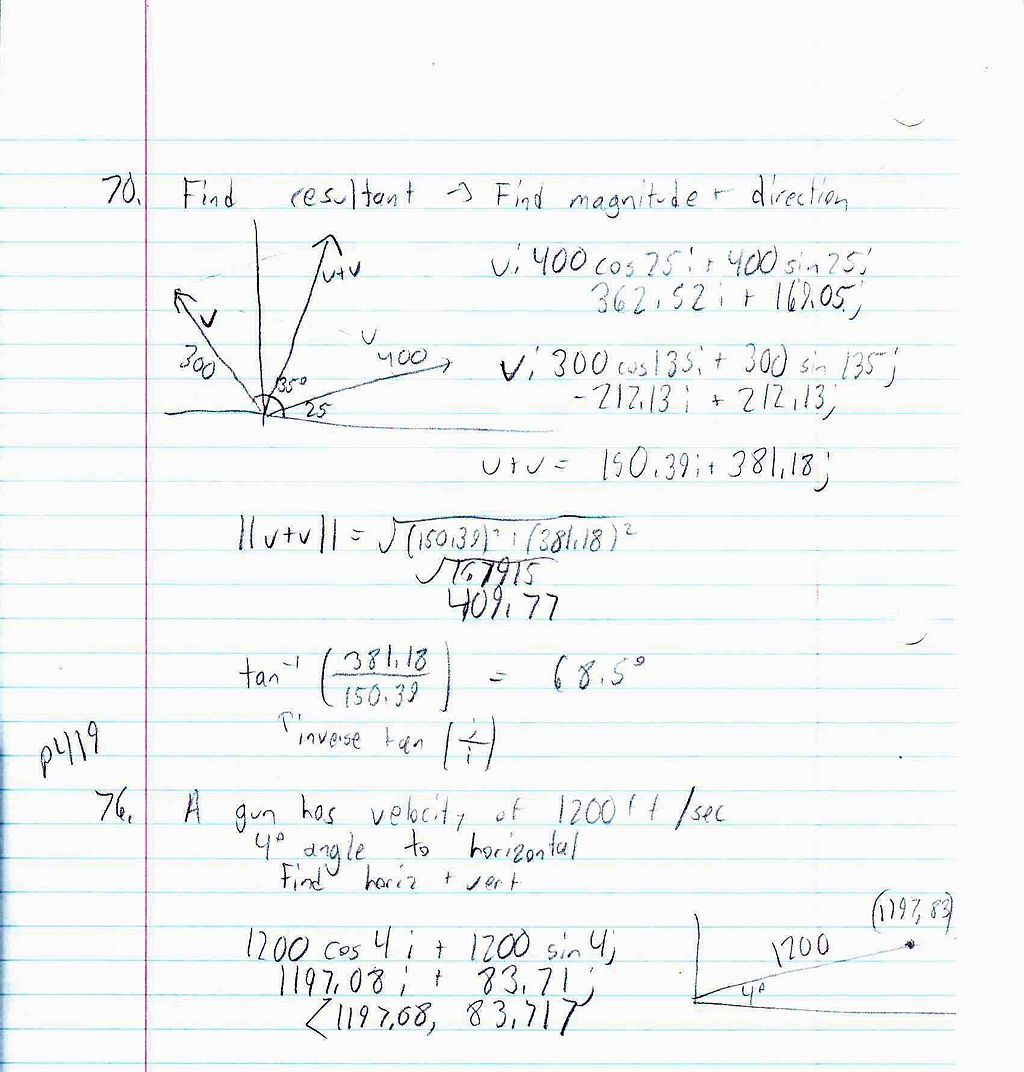 70. Find resultant → Find magnitude + direction
u+v
v
300
u
400
35°
25
u: 400 cos 25 i + 400 sin 25 j
362.52 i + 169.05 j
v: 300 cos 135 i + 300 sin 135 j
-212.13 i + 212.13 j
u+v = 150.39 i + 381.18 j
||u+v|| = √(150.39)² + (381.18)²
409.77
tan⁻¹ (381.18/150.39) = 68.5°
↑ inverse tan (j/i)
p419
76. A gun has velocity of 1200 ft/sec
4° angle to horizontal
Find horiz + vert
1200 cos 4 i + 1200 sin 4 j
1197.08 i + 83.71 j
<1197.08, 83.71>
(1197, 83)
1200
4°